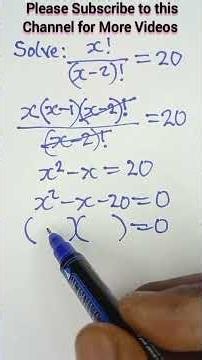 Please Subscribe to this
Channel for More Videos
Solve: x!/(x-2)! = 20
x(x-1)(x-2)!/(x-2)! = 20
x²-x=20
x²-x-20=0
( )( )=0